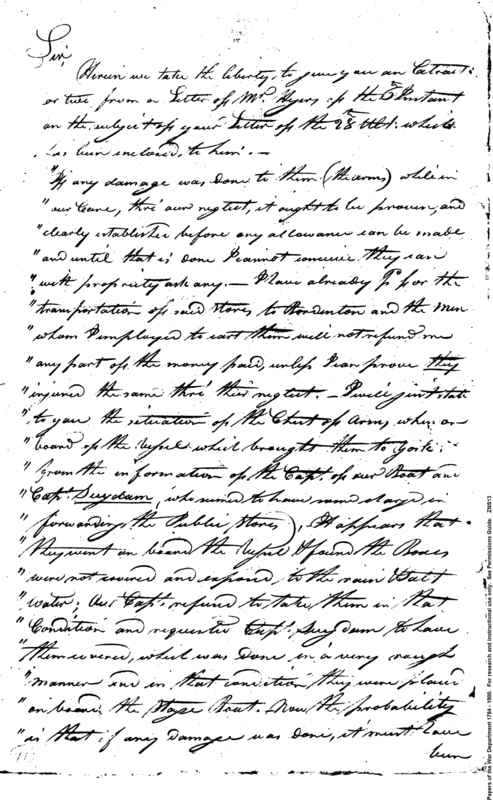 Sir,
Herein we take the liberty, to give you an Extract
or two, from a Letter of Mr. Hyers of the 5th Instant
on the subject of your Letter of the 28th Ulto. which
has been enclosed to him. —
"If any damage was done to them (the arms) while in
" our Care, thro' our neglect, it ought to be proven, and
" clearly established before any allowance can be made
" and until that is done I cannot conceive they can
" with propriety ask any. — I have already Pd. for the
" transportation of said Stores to and the Men
" whom I employed to cart them will not refund me
" any part of the money paid, unless I can prove they
" injured the same thro' their neglect. — I will just state
" to you the situation of the Chest of Arms, when on
" board of the Vessel which brought them to York;
" from the information of the Capt. of our Boat and
" Capt. Suydam, who seemed to have some charge, in
" forwarding the Public Stores), It appears that
" they went on board the Vessel & found the Boxes
" were not covered and exposed, to the rain & salt
" water; Our Capt. refused to take them in that
" Condition and requested Capt. Suydam to have
" them covered, which was done in a very rough
" manner and in that condition they were placed
" on board the Stage Boat. Now the probability
" is that if any damage was done, it must have
been
Papers of the War Department 1784 - 1800. For research and instructional use only. See Permissions Guide. ZNS13